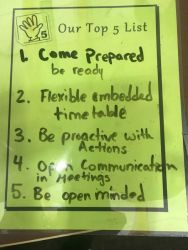 5 Our Top 5 List
1. Come Prepared
be ready
2. Flexible embedded
timetable
3. Be proactive with
Actions
4. Open Communication
in Meetings
5. Be open minded